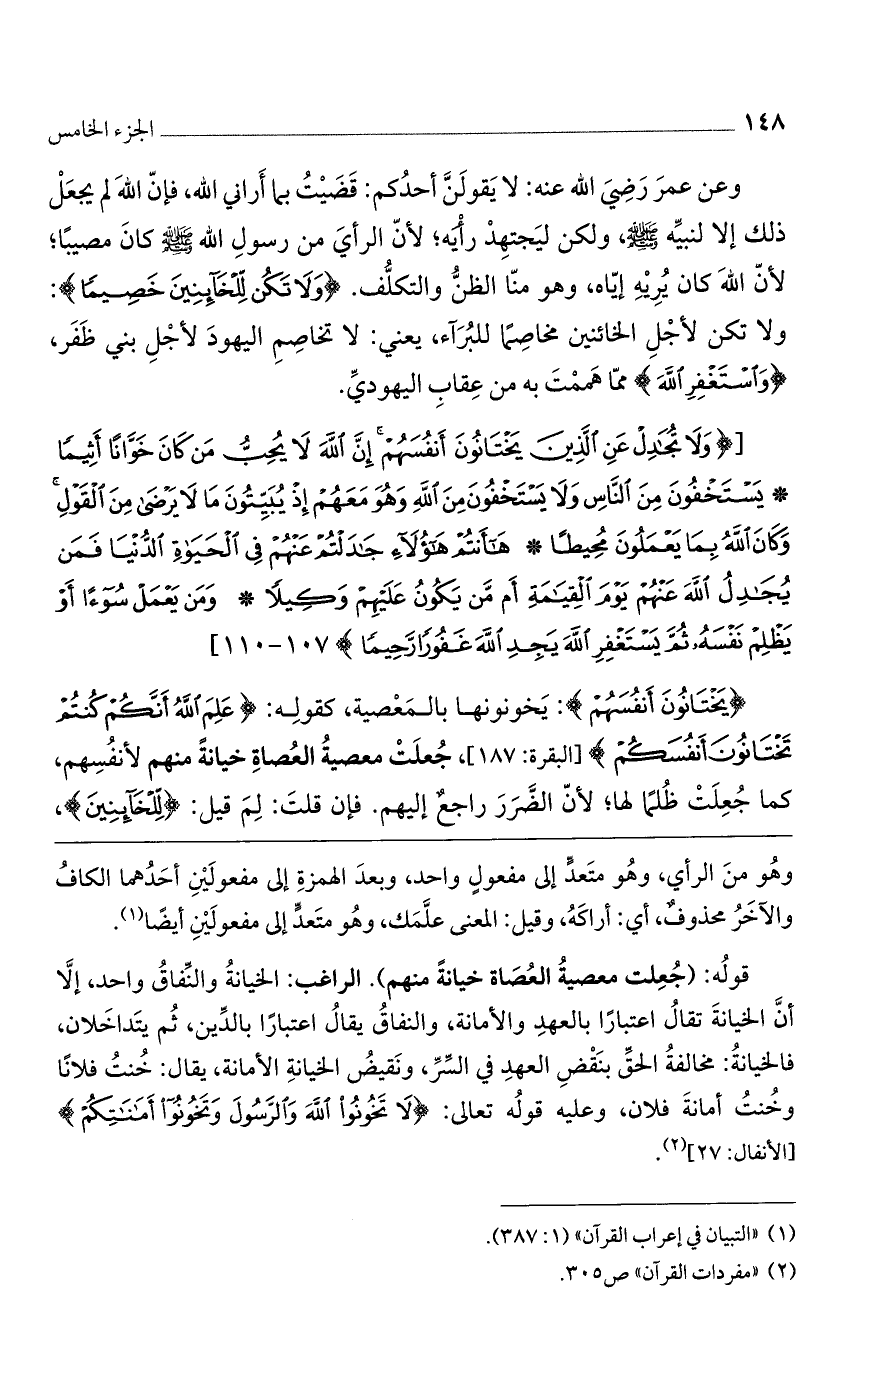 ١٤٨ ـــــــــــــــــــــــــــــــــــــــــــــــــــــــ الجزء الخامس
وعن عمرَ رَضِيَ الله عنه: لا يَقولَنَّ أحدُكم: قَضَيْتُ بما أَراني الله، فإنّ اللهَ لم يجعَلْ
ذلك إلا لنبيِّه ﷺ، ولكن ليَجتهِدْ رأْيَه؛ لأنّ الرأيَ من رسولِ الله ﷺ كانَ مصيبًا؛
لأنّ اللهَ كان يُرِيْهِ إيّاه، وهو منّا الظنُّ والتكلُّف. ﴿وَلَا تَكُن لِّلْخَآئِنِينَ خَصِيمًا﴾:
ولا تكن لأجْلِ الخائنين مخاصِمًا للبُرَآء، يعني: لا تخاصِمِ اليهودَ لأجْلِ بني ظَفَر،
﴿وَٱسْتَغْفِرِ ٱللَّهَ﴾ ممّا هَممْتَ به من عِقابِ اليهوديِّ.
[﴿وَلَا تُجَٰدِلْ عَنِ ٱلَّذِينَ يَخْتَانُونَ أَنفُسَهُمْ ۚ إِنَّ ٱللَّهَ لَا يُحِبُّ مَن كَانَ خَوَّانًا أَثِيمًا
* يَسْتَخْفُونَ مِنَ ٱلنَّاسِ وَلَا يَسْتَخْفُونَ مِنَ ٱللَّهِ وَهُوَ مَعَهُمْ إِذْ يُبَيِّتُونَ مَا لَا يَرْضَىٰ مِنَ ٱلْقَوْلِ ۚ
وَكَانَ ٱللَّهُ بِمَا يَعْمَلُونَ مُحِيطًا * هَٰٓأَنتُمْ هَٰٓؤُلَآءِ جَٰدَلْتُمْ عَنْهُمْ فِى ٱلْحَيَوٰةِ ٱلدُّنْيَا فَمَن
يُجَٰدِلُ ٱللَّهَ عَنْهُمْ يَوْمَ ٱلْقِيَٰمَةِ أَم مَّن يَكُونُ عَلَيْهِمْ وَكِيلًا * وَمَن يَعْمَلْ سُوٓءًا أَوْ
يَظْلِمْ نَفْسَهُۥ ثُمَّ يَسْتَغْفِرِ ٱللَّهَ يَجِدِ ٱللَّهَ غَفُورًا رَّحِيمًا﴾ ١٠٧-١١٠]
﴿يَخْتَانُونَ أَنفُسَهُمْ﴾: يَخونونها بالـمَعْصية، كقولِـه: ﴿عَلِمَ ٱللَّهُ أَنَّكُمْ كُنتُمْ
تَخْتَانُونَ أَنفُسَكُمْ﴾ [البقرة: ١٨٧]، جُعلَتْ معصيةُ العُصاةِ خيانةً منهم لأنفُسِهم،
كما جُعِلَتْ ظُلمًا لها؛ لأنّ الضَّرَرَ راجعٌ إليهم. فإن قلتَ: لِمَ قيل: ﴿لِّلْخَآئِنِينَ﴾،
وهُو منَ الرأي، وهُو متَعدٍّ إلى مفعولٍ واحد، وبعدَ الهمزةِ إلى مفعولَيْنِ أحَدُهما الكافُ
والآخَرُ محذوفٌ، أي: أراكَهُ، وقيل: المعنى علَّمَك، وهُو متَعدٍّ إلى مفعولَيْنِ أيضًا(١).
قولُه: (جُعِلت معصيةُ العُصَاة خيانةً منهم). الراغب: الخيانةُ والنِّفاقُ واحد، إلَّا
أنَّ الخيانةَ تقالُ اعتبارًا بالعهدِ والأمانة، والنفاقُ يقالُ اعتبارًا بالدِّين، ثُم يتَداخَلان،
فالخيانةُ: مخالفةُ الحقِّ بنَقْضِ العهدِ في السِّرِّ، ونَقيضُ الخيانةِ الأمانة، يقال: خُنتُ فلانًا
وخُنتُ أمانةَ فلان، وعليه قولُه تعالى: ﴿لَا تَخُونُوا۟ ٱللَّهَ وَٱلرَّسُولَ وَتَخُونُوٓا۟ أَمَٰنَٰتِكُمْ﴾
[الأنفال: ٢٧](٢).
(١) «التبيان في إعراب القرآن» (١: ٣٨٧).
(٢) «مفردات القرآن» ص٣٠٥.